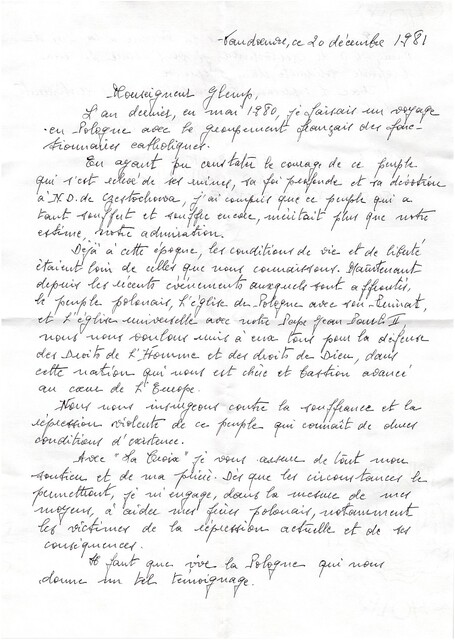 Vandoeuvre, ce 20 décembre 1981
Monseigneur Glemp,
L'an dernier, en mai 1980, je faisais un voyage
en Pologne avec le groupement français des fonc-
tionnaires catholiques.
En ayant pu constater le courage de ce peuple
qui s'est relevé de ses ruines, sa foi profonde et sa dévotion
à N.D. de Czestochowa, j'ai compris que ce peuple qui a
tant souffert et souffre encore, méritait plus que notre
estime, notre admiration.
Déjà à cette époque, les conditions de vie et de liberté
étaient loin de celles que nous connaissons. Maintenant
depuis les récents évènements auxquels sont affrontés,
le peuple polonais, l'église de Pologne avec son Primat,
et l'église universelle avec notre Pape Jean Paul II,
nous nous voulons unis à eux tous pour la défense
des Droits de L'Homme et des droits de Dieu, dans
cette nation qui nous est chère et bastion avancé
au coeur de L'Europe.
Nous nous insurgeons contre la souffrance et la
répression violente de ce peuple qui connait de dures
conditions d'existence.
Avec "La Croix" je vous assure de tout mon
soutien et de ma prière. Dès que les circonstances le
permettront, je m'engage, dans la mesure de mes
moyens, à aider mes frères polonais, notamment
les victimes de la répression actuelle et de ses
conséquences.
Il faut que vive la Pologne qui nous
donne un tel témoignage.